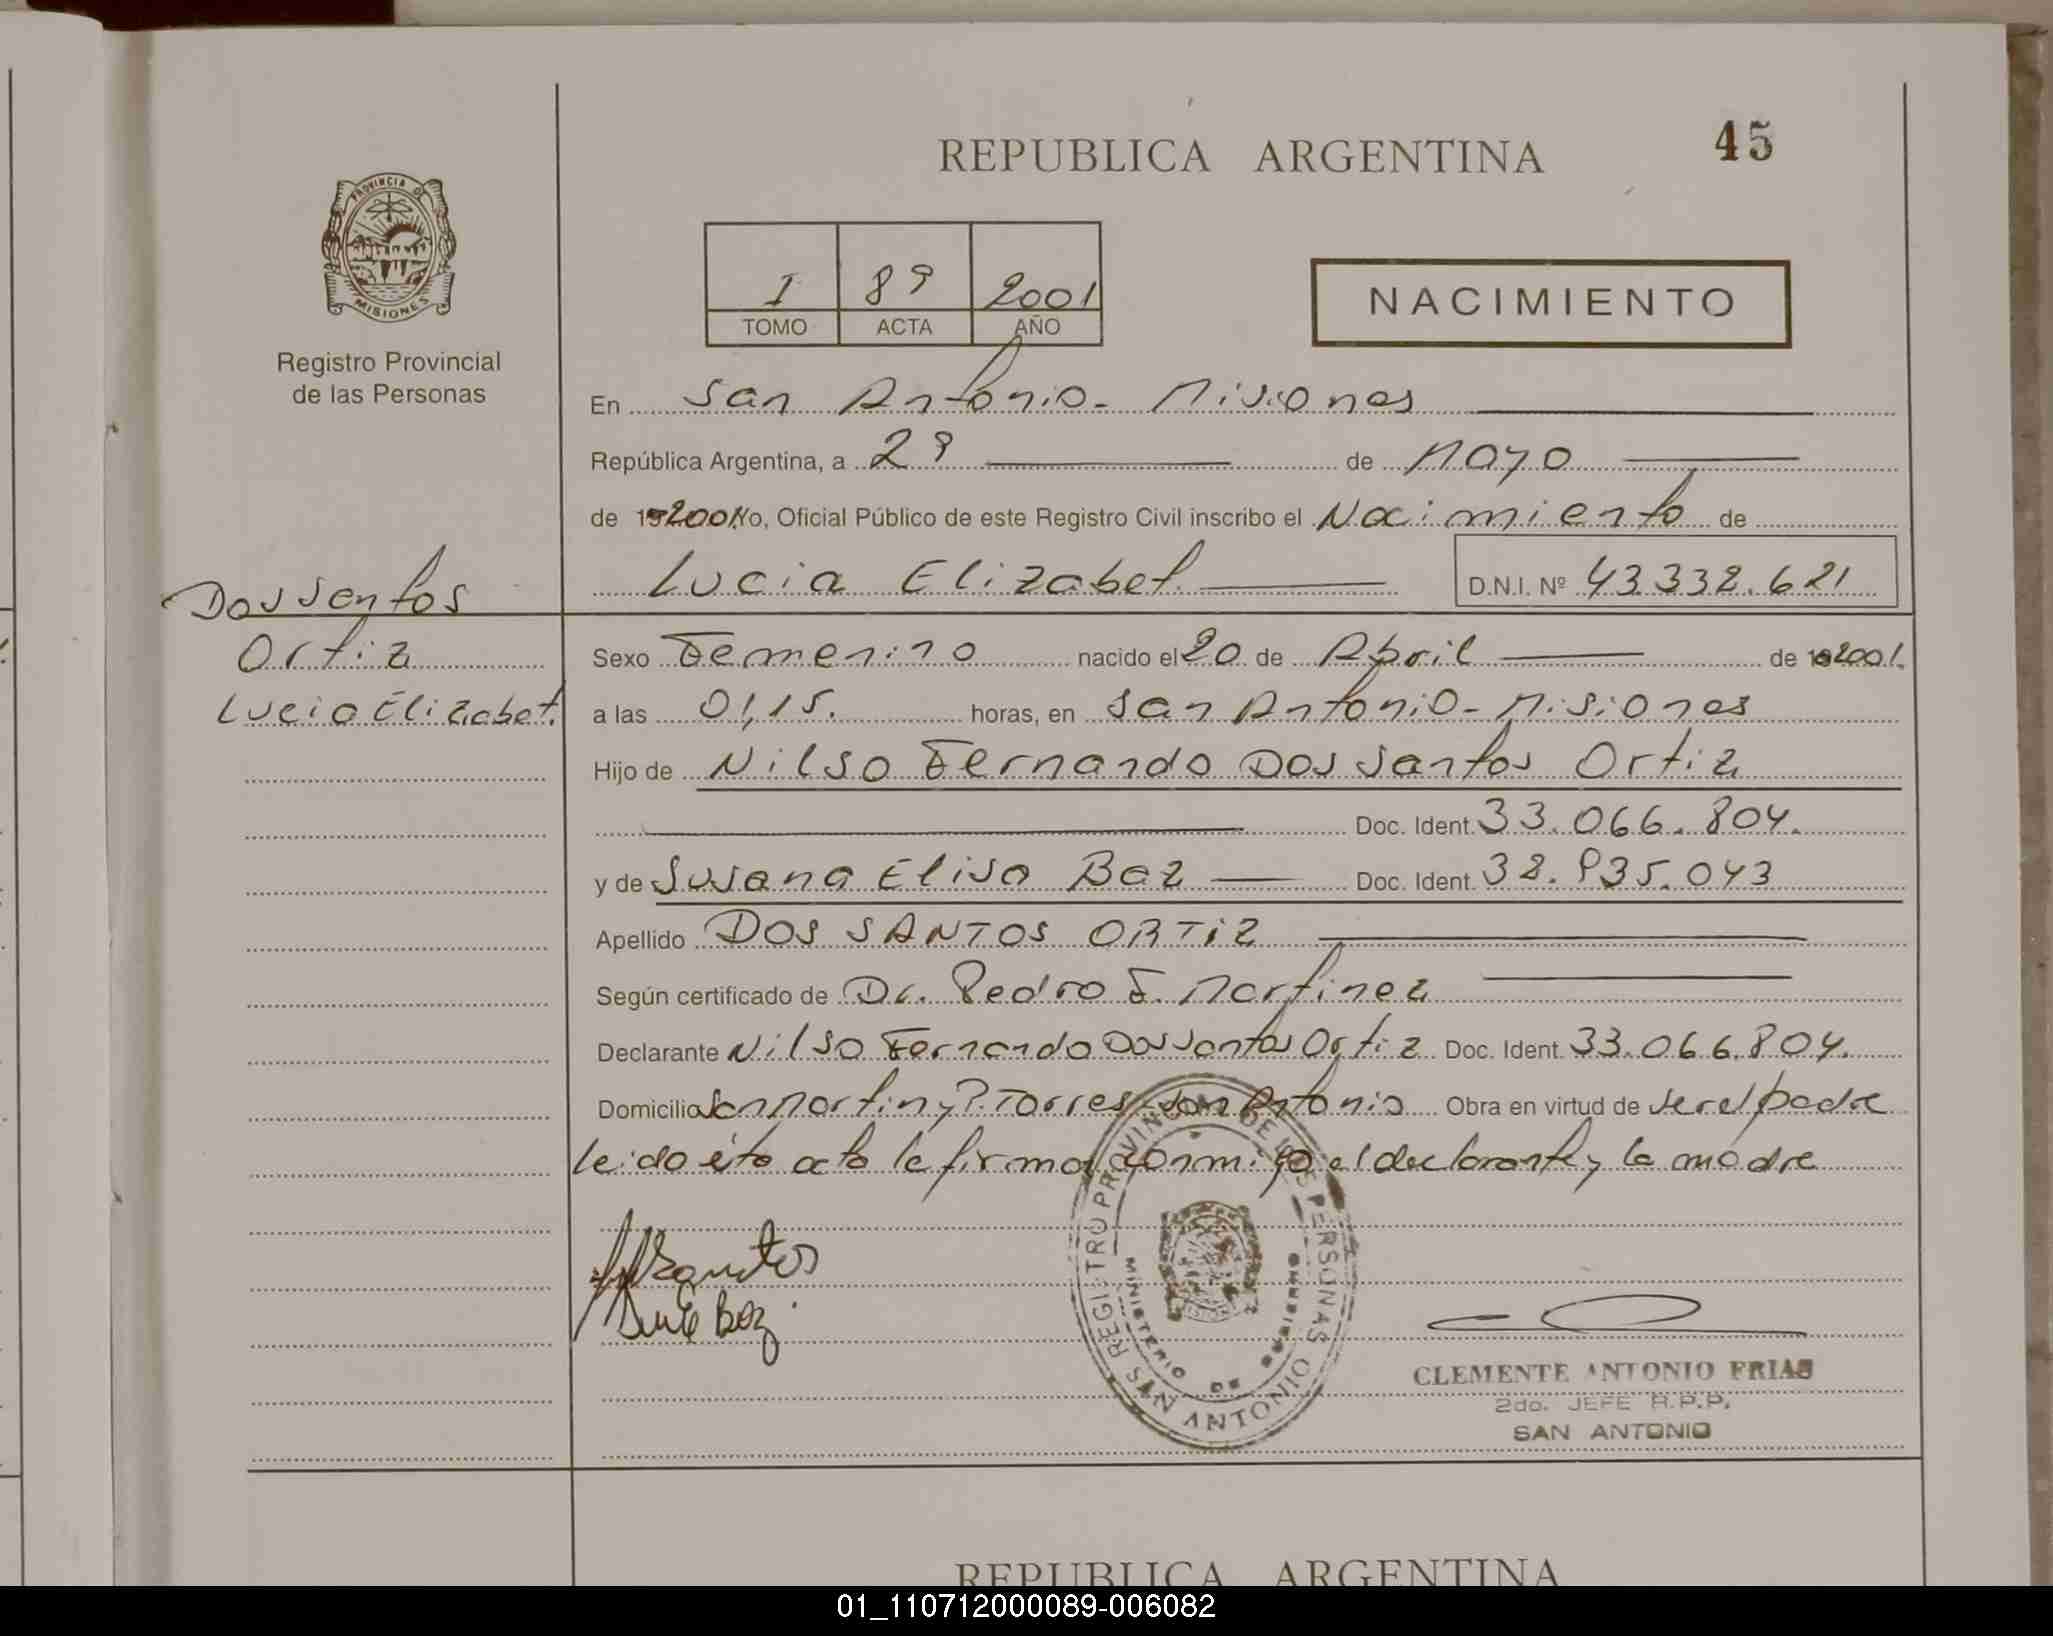 REPUBLICA ARGENTINA
45
PROVINCIA DE MISIONES
Registro Provincial
de las Personas
I 89 2001
TOMO ACTA AÑO
NACIMIENTO
En San Antonio - Misiones
República Argentina, a 29 de Mayo
de 192001 Yo, Oficial Público de este Registro Civil inscribo el Nacimiento de
Lucia Elizabet D.N.I. Nº 43.332.621
Dos Santos
Ortiz
Lucia Elizabet.
Sexo Femenino nacido el 20 de Abril de 192001.
a las 01,15. horas, en San Antonio - Misiones
Hijo de Nilso Fernando Dos Santos Ortiz
Doc. Ident. 33.066.804.
y de Susana Elisa Baz Doc. Ident. 32.935.043
Apellido DOS SANTOS ORTiZ
Según certificado de Dr. Pedro F. Martinez
Declarante Nilso Fernando Dos Santos Ortiz Doc. Ident. 33.066.804.
Domicilio San Martin y P. Torres - San Antonio Obra en virtud de ser el padre
leido éto acto la firman conmigo el declarante y la madre
REGISTRO PROVINCIAL DE LAS PERSONAS
MINISTERIO DE GOBIERNO
SAN ANTONIO
CLEMENTE ANTONIO FRIAS
2do. JEFE R.P.P.
SAN ANTONIO
REPUBLICA ARGENTINA
01_110712000089-006082